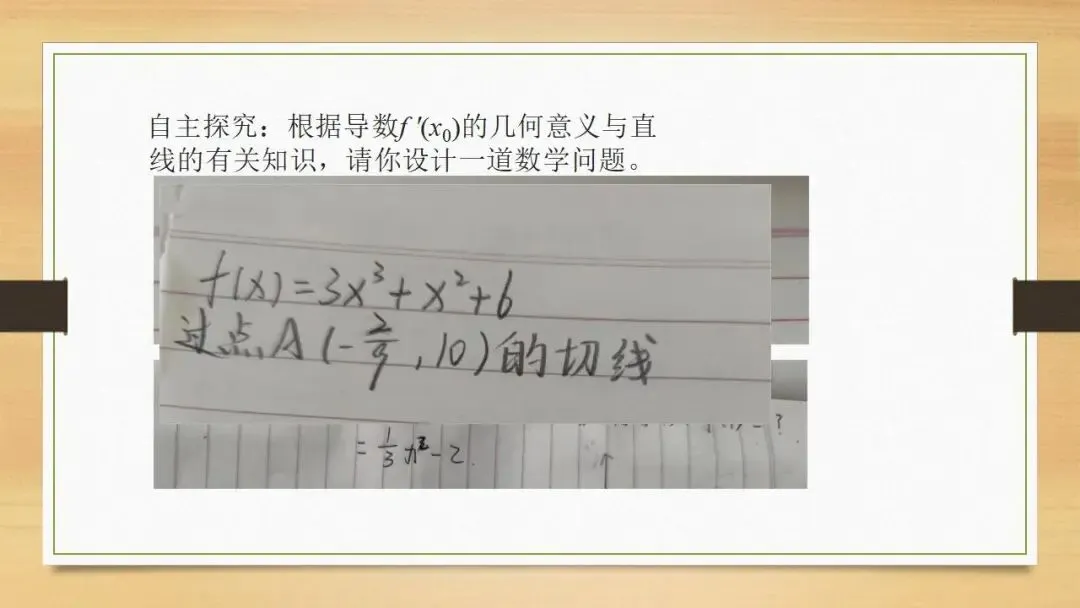 自主探究：根据导数f ′(x₀)的几何意义与直
线的有关知识，请你设计一道数学问题。
f(x)=3x³+x²+6
过点A(-2/9,10)的切线
=1/3x²-2.